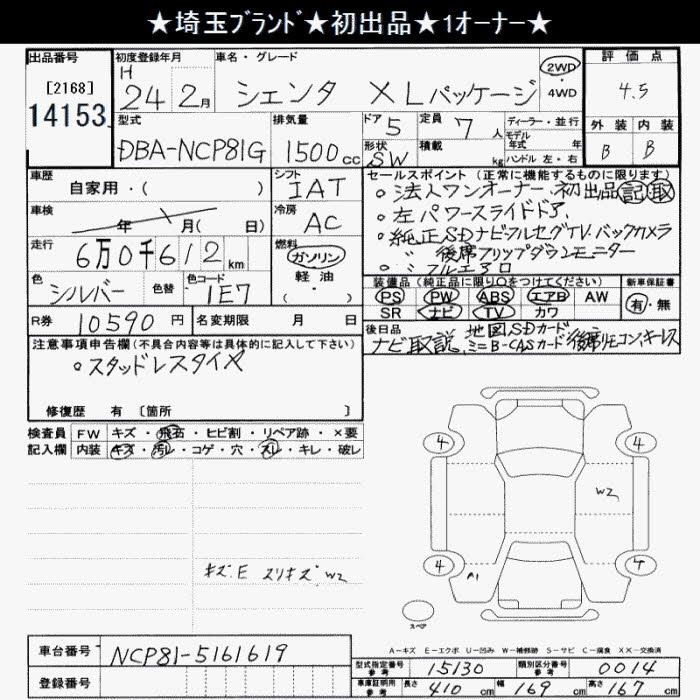 ★埼玉ﾌﾞﾗﾝﾄﾞ★初出品★1オーナー★
出品番号 初度登録年月 車名・グレード 評価点
[2168] H 24 2月 シエンタ XLパッケージ 2WD ・ 4WD 4.5
14153
型式 排気量 ドア 5 定員 7 人 ディーラー・並行 外装 内装
DBA-NCP81G 1500cc 形状 SW 積載 kg モデル年式 年式 ハンドル 左・右 B B
車歴 シフト セールスポイント (正常に機能するものに限ります)
自家用・( ) IAT 。法人ワンオーナー、初出品 記 取
車検 年 月( 日) 冷房 AC 。左パワースライドドア、
走行 6万0千612km 燃料 ガソリン 。純正SDナビフルセグTV、バックカメラ
軽油 ・ 〃 後席フリップダウンモニター
色 シルバー 色替 色コード 1E7 。〃フルエアロ
装備品(純正品に限り○をつけてください) 新車保証書
R券 10590円 名変期限 月 日 PS PW ABS エアB AW 有・無
SR ナビ TV カワ
注意事項申告欄(不具合内容等は具体的に記入して下さい) 後日品 地図SDカード
。スタッドレスタイヤ ナビ取説、ミニB-CASカード 後席リモコン、キーレス
修復歴 有 [箇所 ]
検査員 FW キズ・飛石・ヒビ割・リペア跡・×要
記入欄 内装 キズ・汚レ・コゲ・穴・スレ・キレ・破レ
4 4
W2
キズ.E スリキズ W2
4 A1 4
スペア
A－キズ E－エクボ U－凹み W－補修跡 S－サビ C－腐食 XX－交換済
車台番号 NCP81-5161619
型式指定番号 参考 15130 類別区分番号 参考 0014
登録番号 車庫証明用 参考 長さ 410 cm 幅 169 cm 高さ 167 cm